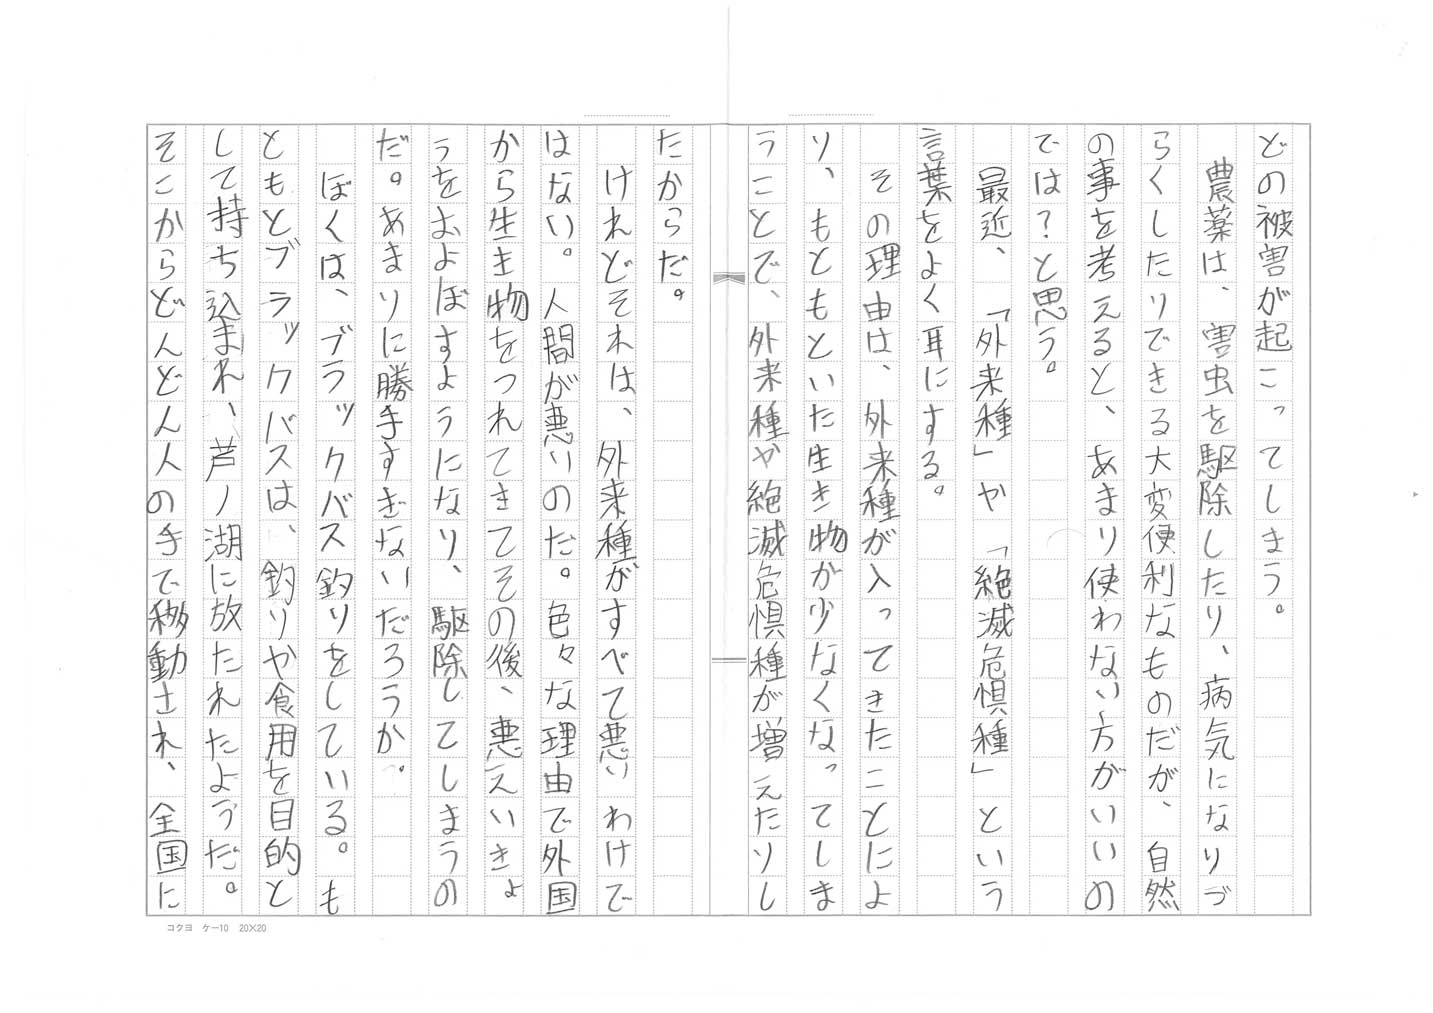 どの被害が起こってしまう。
農薬は、害虫を駆除したり、病気になりづ
らくしたりできる大変便利なものだが、自然
の事を考えると、あまり使わない方がいいの
では?と思う。
最近、「外来種」や「絶滅危惧種」という
言葉をよく耳にする。
その理由は、外来種が入ってきたことによ
り、もともといた生き物が少なくなってしま
うことで、外来種や絶滅危惧種が増えたりし
たからだ。
けれどそれは、外来種がすべて悪いわけで
はない。人間が悪いのだ。色々な理由で外国
から生き物をつれてきてその後、悪えいきょ
うをおよぼすようになり、駆除してしまうの
だ。あまりに勝手すぎないだろうか。
ぼくは、ブラックバス釣りをしている。も
ともとブラックバスは、釣りや食用を目的と
して持ち込まれ、芦ノ湖に放たれたようだ。
そこからどんどん人の手で移動され、全国に
コクヨ ケー10 20×20